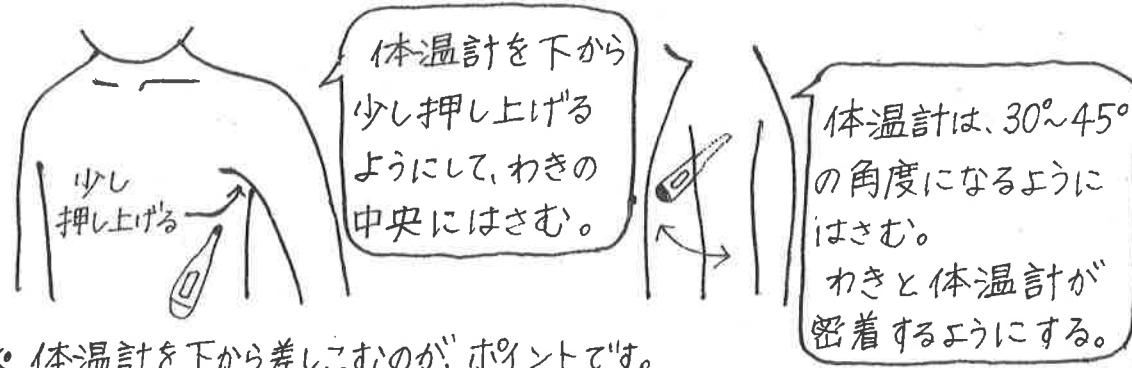 体温計を下から
少し押し上げる
ようにして、わきの
中央にはさむ。
少し
押し上げる
体温計は、30°~45°
の角度になるように
はさむ。
わきと体温計が
密着するようにする。
体温計を下から差しこむのが、ポイントです。